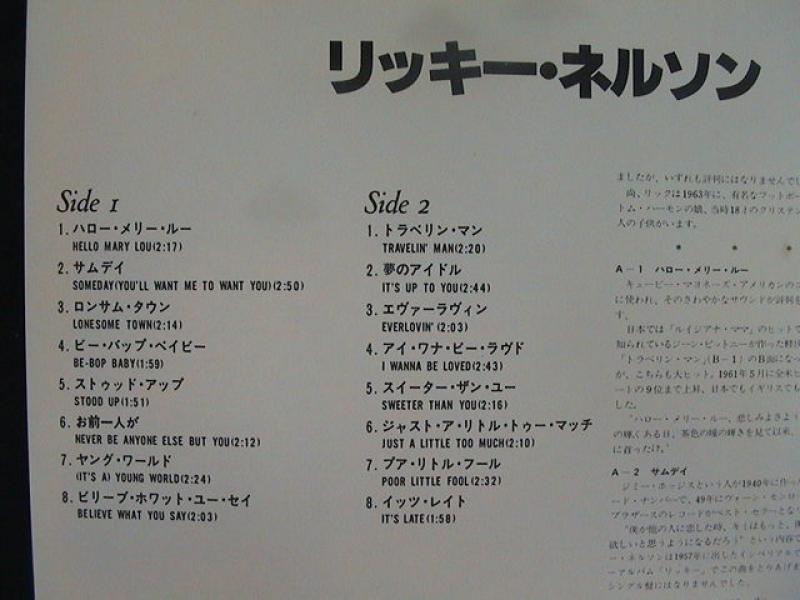 リッキー・ネルソン
Side 1
1. ハロー・メリー・ルー
HELLO MARY LOU(2:17)
2. サムデイ
SOMEDAY(YOU'LL WANT ME TO WANT YOU)(2:50)
3. ロンサム・タウン
LONESOME TOWN(2:14)
4. ビー・バップ・ベイビー
BE-BOP BABY(1:59)
5. ストゥッド・アップ
STOOD UP(1:51)
6. お前一人が
NEVER BE ANYONE ELSE BUT YOU(2:12)
7. ヤング・ワールド
(IT'S A) YOUNG WORLD(2:24)
8. ビリーブ・ホワット・ユー・セイ
BELIEVE WHAT YOU SAY(2:03)
Side 2
1. トラベリン・マン
TRAVELIN' MAN(2:20)
2. 夢のアイドル
IT'S UP TO YOU(2:44)
3. エヴァーラヴィン
EVERLOVIN'(2:03)
4. アイ・ワナ・ビー・ラヴド
I WANNA BE LOVED(2:43)
5. スイーター・ザン・ユー
SWEETER THAN YOU(2:16)
6. ジャスト・ア・リトル・トゥー・マッチ
JUST A LITTLE TOO MUCH(2:10)
7. プア・リトル・フール
POOR LITTLE FOOL(2:32)
8. イッツ・レイト
IT'S LATE(1:58)
ましたが、いずれも評判にはなりませんでし
尚、リックは1963年に、有名なフットボー
トム・ハーモンの娘、当時18才のクリステン
人の子供がいます。
A－1 ハロー・メリー・ルー
キューピー・マヨネーズ・アメリカンの
に使われ、そのさわやかなサウンドが評判を
す。
日本では「ルイジアナ・ママ」のヒットで
知られているジーン・ピットニーが作った軽快
「トラベリン・マン」(B－1)のB面になっ
が、こちらも大ヒット。1961年5月に全米ヒ
ートの9位まで上昇、日本でもイギリスでも
した。
"ハロー・メリー・ルー、悲しみよさよう
の輝くある日、茶色の瞳の輝きを見て以来、
に首ったけ。"
A－2 サムデイ
ジミー・ホッジスという人が1940年に作っ
ード・ナンバーで、49年にヴォーン・モンロー
ブラザースのレコードがベスト・セラーとな
"僕が他の人に恋した時、キミはもっと、僕
欲しいと思うようになるだろう" という内容で
ー・ネルソンは1957年に出したインペリアルで
ーアルバム「リッキー」でこの曲をとりあげ
シングル盤にはなりませんでした。